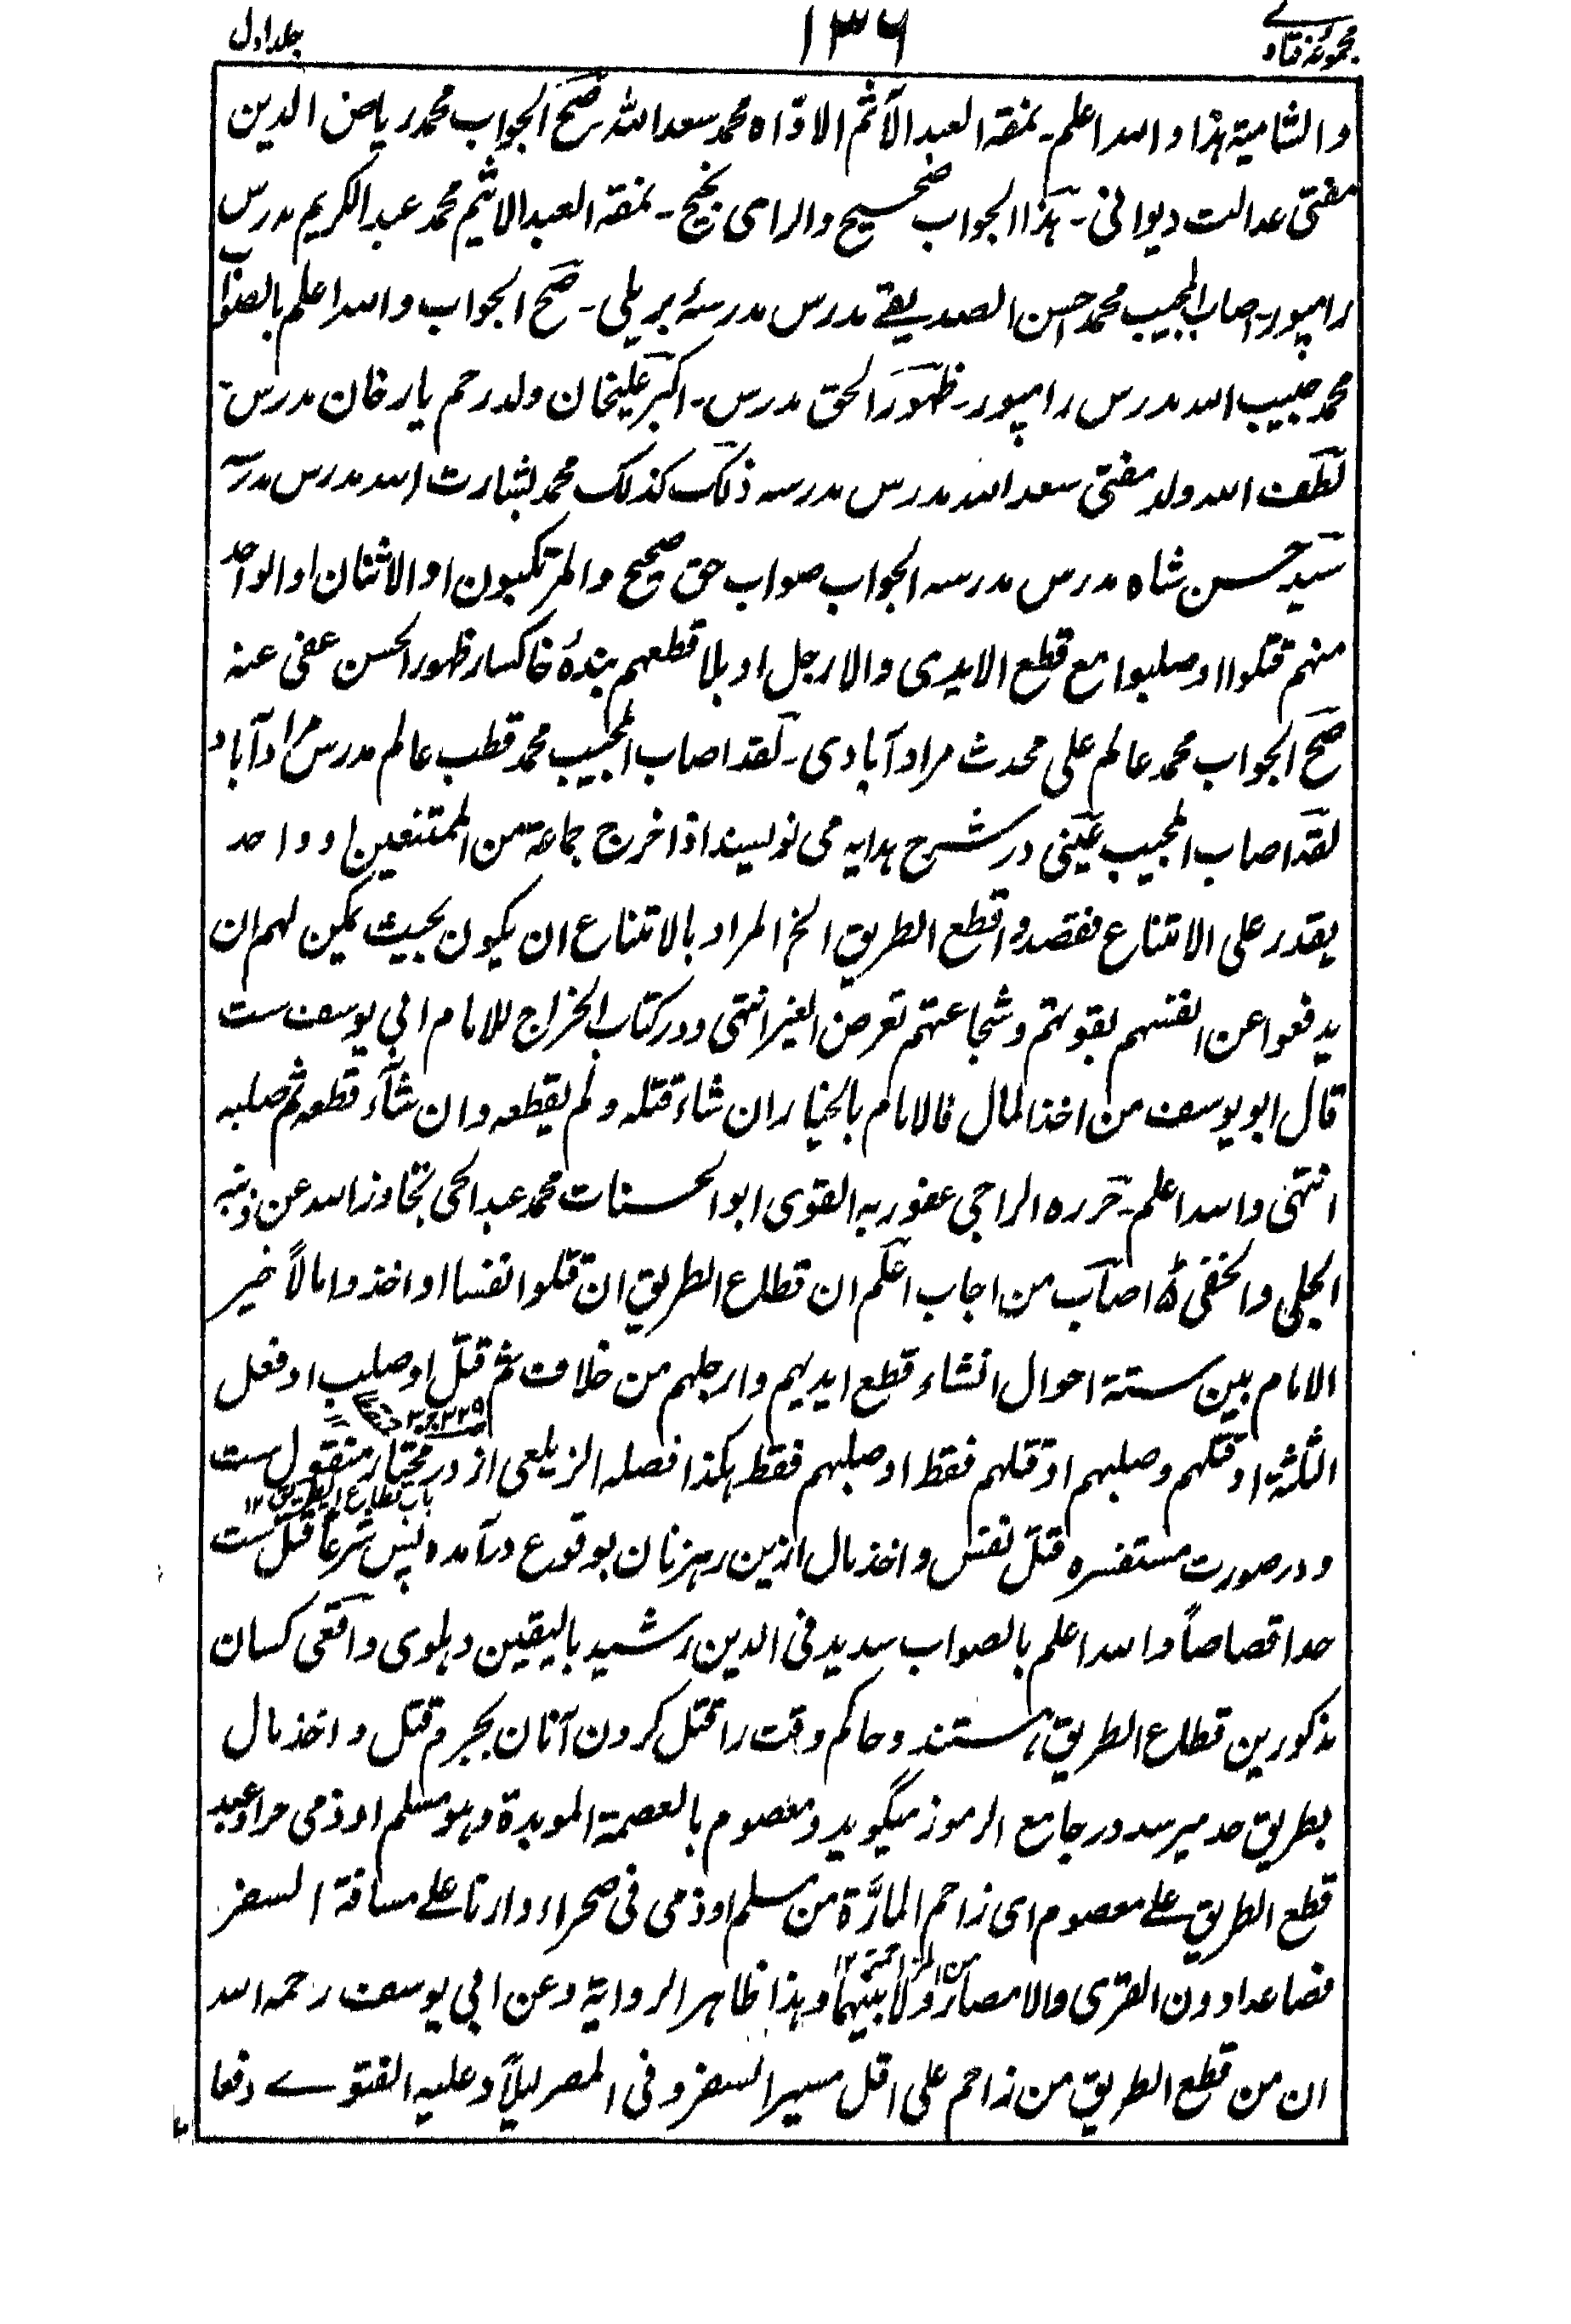 مجموعۂ فتاوے ١٣٦ جلد اول
والشامیة ہذا واللہ اعلم۔ نمقہ العبد الآثم الاوّاہ محمد سعد اللہ۔ صَحَّ الجواب محمد ریاض الدین
مفتی عدالت دیوانی۔ ہذا الجواب صحیح والرای نجیح۔ نمقہ العبد الاثیم محمد عبد الکریم مدرس
رامپور۔ اصاب المجیب محمد احسن الصدیقے مدرس مدرسۂ بریلی۔ صح الجواب واللہ اعلم بالصواب
محمد حبیب اللہ مدرس رامپور۔ ظہور الحق مدرس۔ اکبر علیخان ولد رحم یار خان مدرس۔
لطف اللہ ولد مفتی سعد اللہ مدرس مدرسہ ذلک کذلک محمد بشارت اللہ مدرس مدرسہ
سید حسن شاہ مدرس مدرسہ الجواب صواب حق صحیح والمرتکبون او الاثنان او الواحد
منہم قتلوا او صلبوا مع قطع الایدی والارجل او بلا قطعہم بندۂ خاکسار ظہور الحسن عفی عنہ
صح الجواب محمد عالم علی محدث مراد آبادی۔ لقد اصاب المجیب محمد قطب عالم مدرس مراد آباد
لقد اصاب المجیب عینی در شرح ہدایہ می نویسند اذا خرج جماعة من الممتنعین او واحد
یقدر علی الامتناع فقصدوا قطع الطریق الخ المراد بالامتناع ان یکون بحیث یمکن لہم ان
یدفعوا عن انفسہم بقوتہم وشجاعتہم تعرض الغیر انتہی ودر کتاب الخراج للامام ابی یوسف ست
قال ابو یوسف من اخذ المال فالامام بالخیار ان شاء قتلہ ولم یقطعہ وان شاء قطعہ ثم صلبہ
انتہی واللہ اعلم۔ حررہ الراجی عفو ربہ القوی ابو الحسنات محمد عبد الحی تجاوز اللہ عن ذنبہ
الجلی والخفی اصاب من اجاب اعلم ان قطاع الطریق ان قتلوا نفسا او اخذوا مالاً خیر
الامام بین ستة احوال انشاء قطع ایدیہم وارجلہم من خلاف ثم قتل او صلب او فعل
الثلثة او قتلہم وصلبہم او قتلہم فقط او صلبہم فقط ہکذا فصلہ الزیلعی از در مختار منقول ست
باب قطاع الطریق ١٢
ودر صورت مستفسرہ قتل نفس واخذ مال ازین رہزنان بوقوع درآمدہ پس شرعاً قتل ست
حدا قصاصاً واللہ اعلم بالصواب سدید فی الدین رشید بالیقین دہلوی واقعی کسان
مذکورین قطاع الطریق ہستند وحاکم وقت را قتل کردن آنان بجرم قتل و اخذ مال
بطریق حد میرسد در جامع الرموز میگوید ومعصوم بالعصمة الموبدة وہو مسلم او ذمی حر او عبد
قطع الطریق علے معصوم ای زاحم المارَّة من مسلم او ذمی فی صحراء دارنا علے مسافة السفر
فصاعدا دون القری والامصار ولا بینہما وہذا ظاہر الروایة وعن ابی یوسف رحمہ اللہ
ان من قطع الطریق من زاحم علی اقل مسیر السفر وفی المصر لیلاً وعلیہ الفتوے دفعا